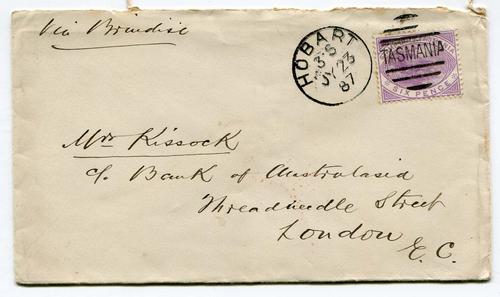 Via Brindisi
HOBART
3·S
JY 23
87
TASMANIA
SIX PENCE
Mrs Kissock
c/o Bank of Australasia
Threadneedle Street
London
E. C.